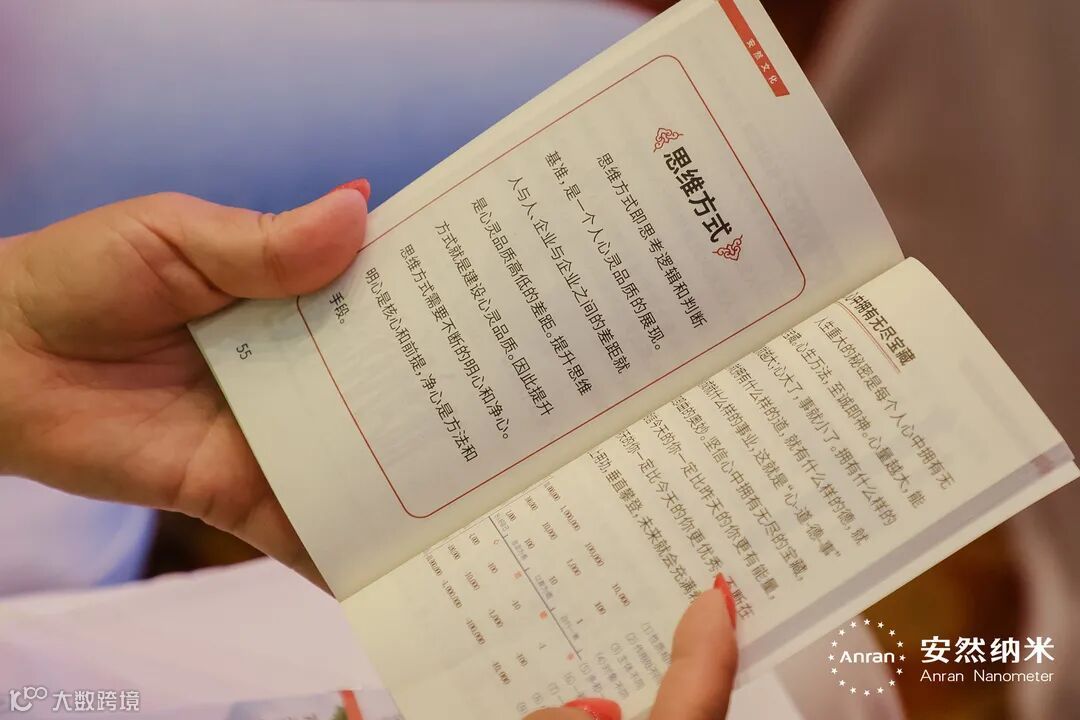 安然文化
思维方式
思维方式即思考逻辑和判断
基准，是一个人心灵品质的展现。
人与人、企业与企业之间的差距就
是心灵品质高低的差距。提升思维
方式就是建设心灵品质。因此提升
思维方式需要不断的明心和净心。
明心是核心和前提，净心是方法和
手段。
55
心中拥有无尽宝藏
人生重大的秘密是每个人心中拥有无
宝藏。心生万法，至诚即神。心量越大，能
越大；心大了，事就小了。拥有什么样的
拥有什么样的道，就有什么样的德，就
有什么样的事业，这就是“心-道-德-事”
的奥妙。坚信心中拥有无尽的宝藏，
今天的你一定比昨天的你更有能量，
的你一定比今天的你更优秀，不断在
上用功，垂直攀登，未来就会充满
1,000,000
100,000
10,000
10,000
1,000
100
1,000
100
10
1
10
-1
-10
-100
-1,000
-10,000
-100,000
Anran
安然纳米
Anran Nanometer
大数跨境